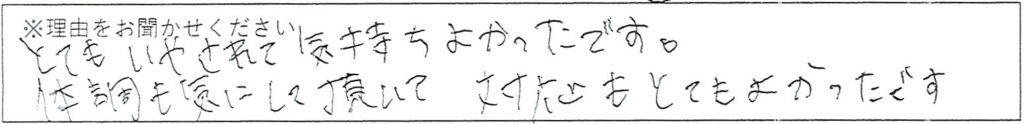 ※理由をお聞かせください
とてもいやされて気持ちよかったです。
体調も気にして頂いて 対応もとてもよかったです